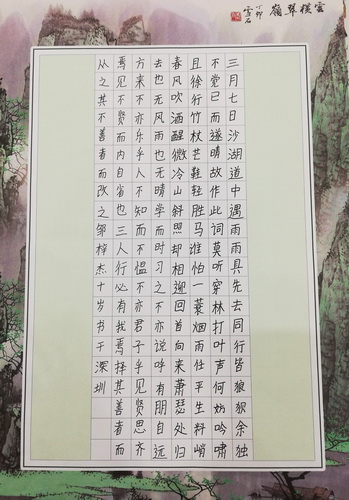 雲横翠嶺
丁卯
雪石
三月七日沙湖道中遇雨雨具先去同行皆狼狈余独
不觉已而遂晴故作此词莫听穿林打叶声何妨吟啸
且徐行竹杖芒鞋轻胜马谁怕一蓑烟雨任平生料峭
春风吹酒醒微冷山斜照却相迎回首向来萧瑟处归
去也无风雨也无晴学而时习之不亦说呼有朋自远
方来不亦乐乎人不知而不愠不亦君子乎见贤思齐
焉见不贤而内自省也三人行必有我焉择其善者而
从之其不善者而改之邹梓杰十岁书于深圳